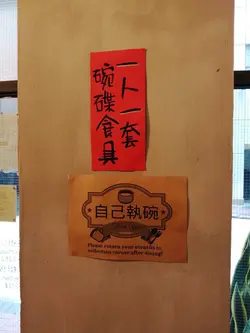 一人一套
碗碟食具
自己執碗
Please return your utensils to
collection corner after eating!